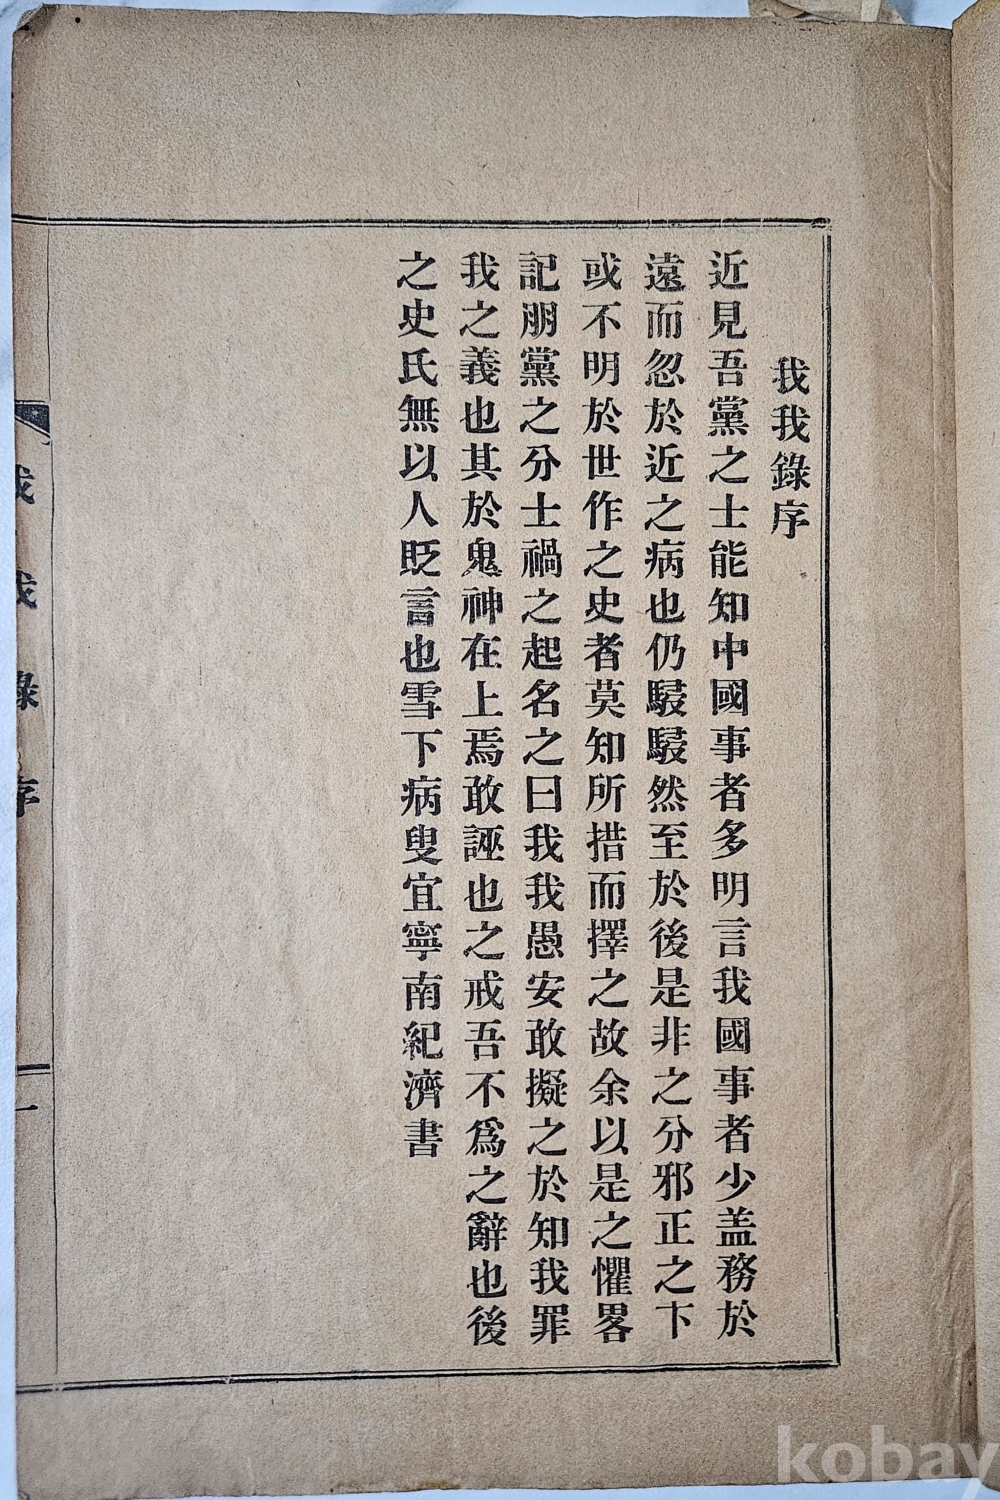 我我錄序
近見吾黨之士能知中國事者多明言我國事者少盖務於
遠而忽於近之病也仍駸駸然至於後是非之分邪正之下
或不明於世作之史者莫知所措而擇之故余以是之懼畧
記朋黨之分士禍之起名之曰我我愚安敢擬之於知我罪
我之義也其於鬼神在上焉敢誣也之戒吾不爲之辭也後
之史氏無以人貶言也雪下病叟宜寧南紀濟書
我我錄序
一
kobay